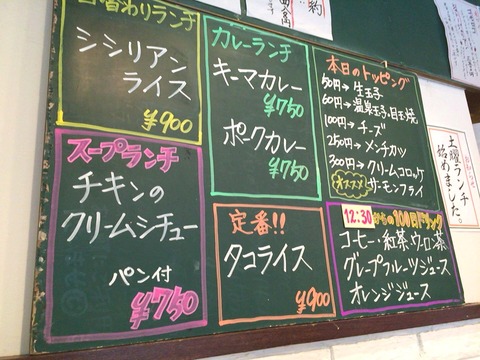 日替わりランチ
シシリアン
ライス
¥900
スープランチ
チキンの
クリームシチュー
パン付
¥750
カレーランチ
キーマカレー
¥750
ポークカレー
¥750
定番!!
タコライス
¥900
本日のトッピング
50円→生玉子
60円→温泉玉子、目玉焼
100円→チーズ
250円→メンチカツ
300円→クリームコロッケ
オススメ!サーモンフライ
12:30からの100円ドリンク
コーヒー・紅茶・ウーロン茶
グレープフルーツジュース
オレンジジュース
土曜ランチ
始めました。